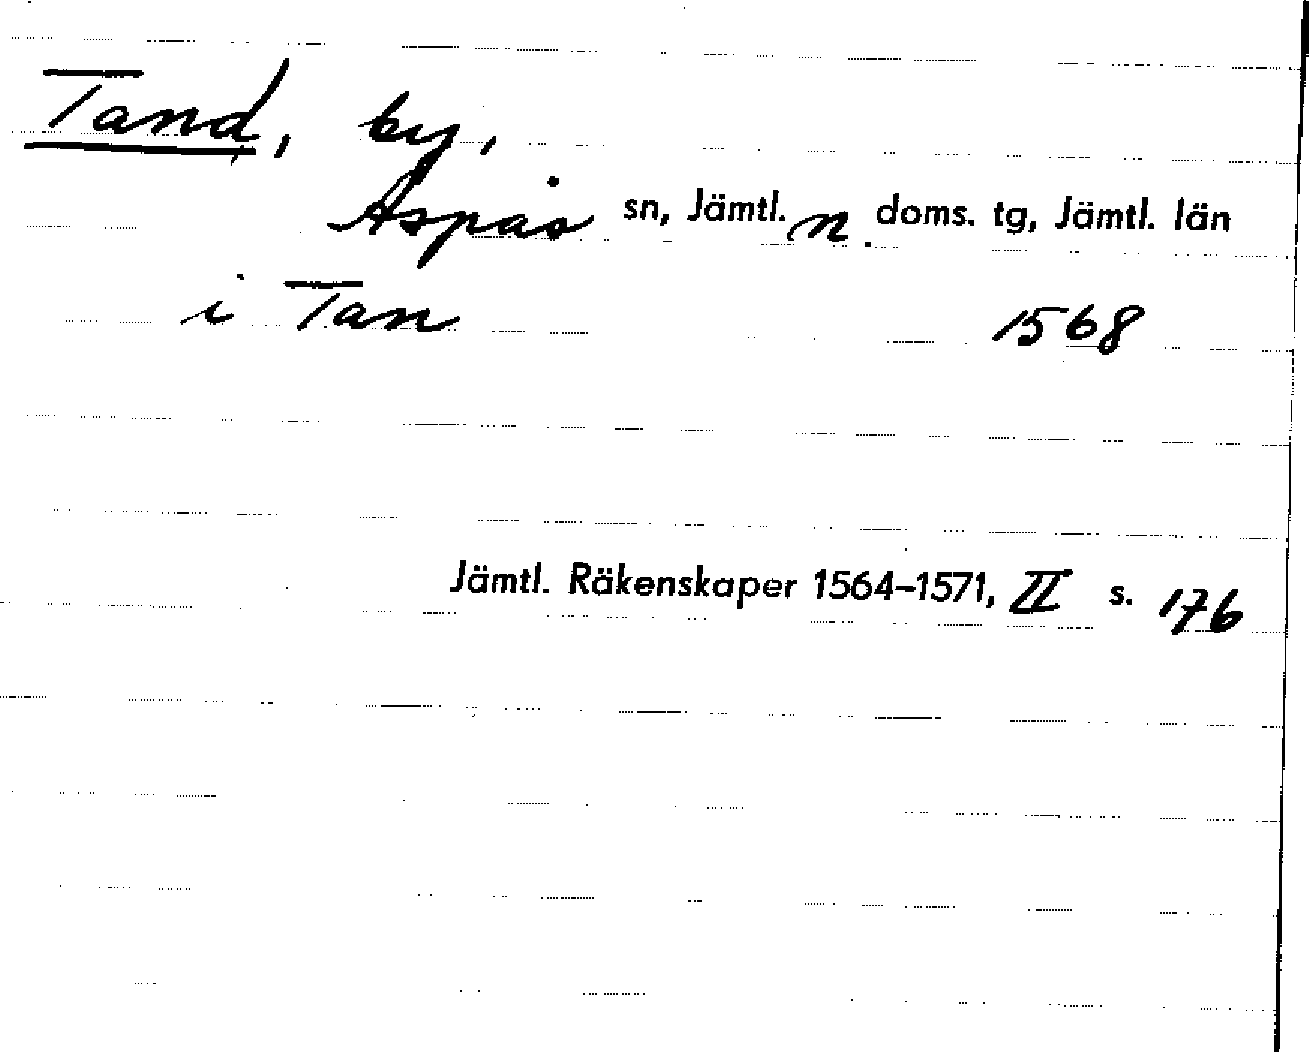 Tand, by,
Aspås sn, Jämtl. n. doms. tg, Jämtl. län
i Tan 1568
Jämtl. Räkenskaper 1564–1571, II s. 176